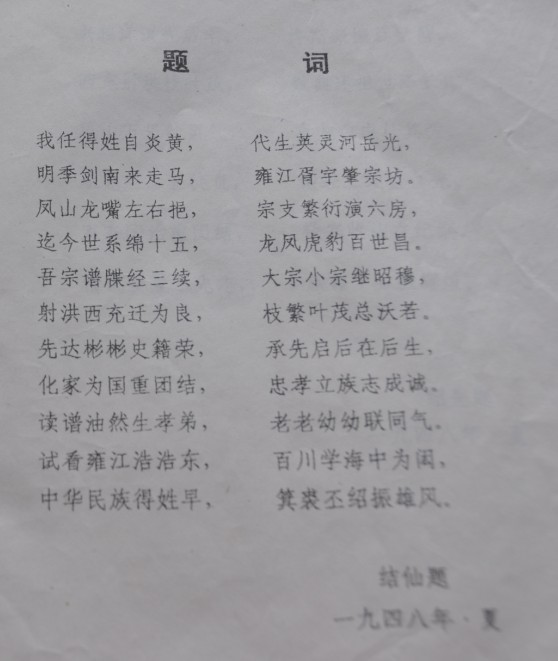 题 词
我任得姓自炎黄， 代生英灵河岳光，
明季剑南来走马， 雍江胥宇肇宗坊。
凤山龙嘴左右挹， 宗支繁衍演六房，
迄今世系绵十五， 龙凤虎豹百世昌。
吾宗谱牒经三续， 大宗小宗继昭穆，
射洪西充迁为良， 枝繁叶茂总沃若。
先达彬彬史籍荣， 承先启后在后生，
化家为国重团结， 忠孝立族志成诚。
读谱油然生孝弟， 老老幼幼联同气。
试看雍江浩浩东， 百川学海中为闳，
中华民族得姓早， 箕裘丕绍振雄风。
结仙题
一九四八年·夏